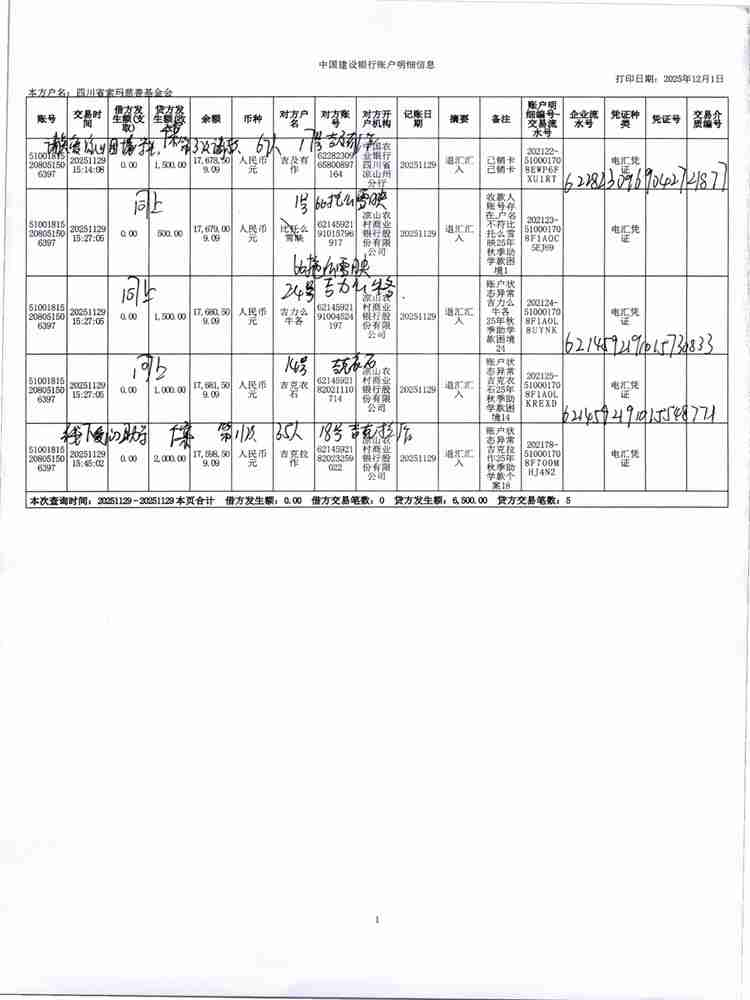 中国建设银行账户明细信息
打印日期：2025年12月1日
本方户名：四川省索玛慈善基金会
账号 交易时间 借方发生额(支取) 贷方发生额(收 余额 币种 对方户名 对方账号 对方开户机构 记账日期 摘要 备注 账户明细编号-交易流水号 企业流水号 凭证种类 凭证号 交易介质编号
6人 17号
51001815208051506397 20251129 15:14:08 0.00 1,500.00 17,678,509.09 人民币元 吉及有作 6228230965800897164 业银行四川省凉山州分行 20251129 退汇汇入 已销卡已销卡 202122-510001708EWP6FXU1RT 电汇凭证
6228230969042721877
同上 1号
51001815208051506397 20251129 15:27:05 0.00 500.00 17,679,009.09 人民币元 比托么雪映 6214592191015796917 凉山农村商业银行股份有限公司 20251129 退汇汇入 收款人账号存在,户名不符比托么雪映25年秋季助学款困境1 202123-510001708F1AOC5EJ69 电汇凭证
同上 24号 吉力么牛各
51001815208051506397 20251129 15:27:05 0.00 1,500.00 17,680,509.09 人民币元 吉力么牛各 6214592191004524197 凉山农村商业银行股份有限公司 20251129 退汇汇入 账户状态异常吉力么牛各25年秋季助学款困境24 202124-510001708F1AOL8UYNK 电汇凭证
6214592191015730833
同上 14号 吉克衣石
51001815208051506397 20251129 15:27:05 0.00 1,000.00 17,681,509.09 人民币元 吉克衣石 6214592182021110714 凉山农村商业银行股份有限公司 20251129 退汇汇入 账户状态异常吉克衣石25年秋季助学款困境14 202125-510001708F1AOLKREXD 电汇凭证
6214592191015548771
线下爱心助学 个案 35人 18号 吉克拉作
51001815208051506397 20251129 15:45:02 0.00 2,000.00 17,598,509.09 人民币元 吉克拉作 6214592182023259022 凉山农村商业银行股份有限公司 20251129 退汇汇入 账户状态异常吉克拉作25年秋季助学款个案18 202178-510001708F700MHJ4N2 电汇凭证
本次查询时间：20251129-20251129本页合计 借方发生额：0.00 借方交易笔数：0 贷方发生额：6,500.00 贷方交易笔数：5
1